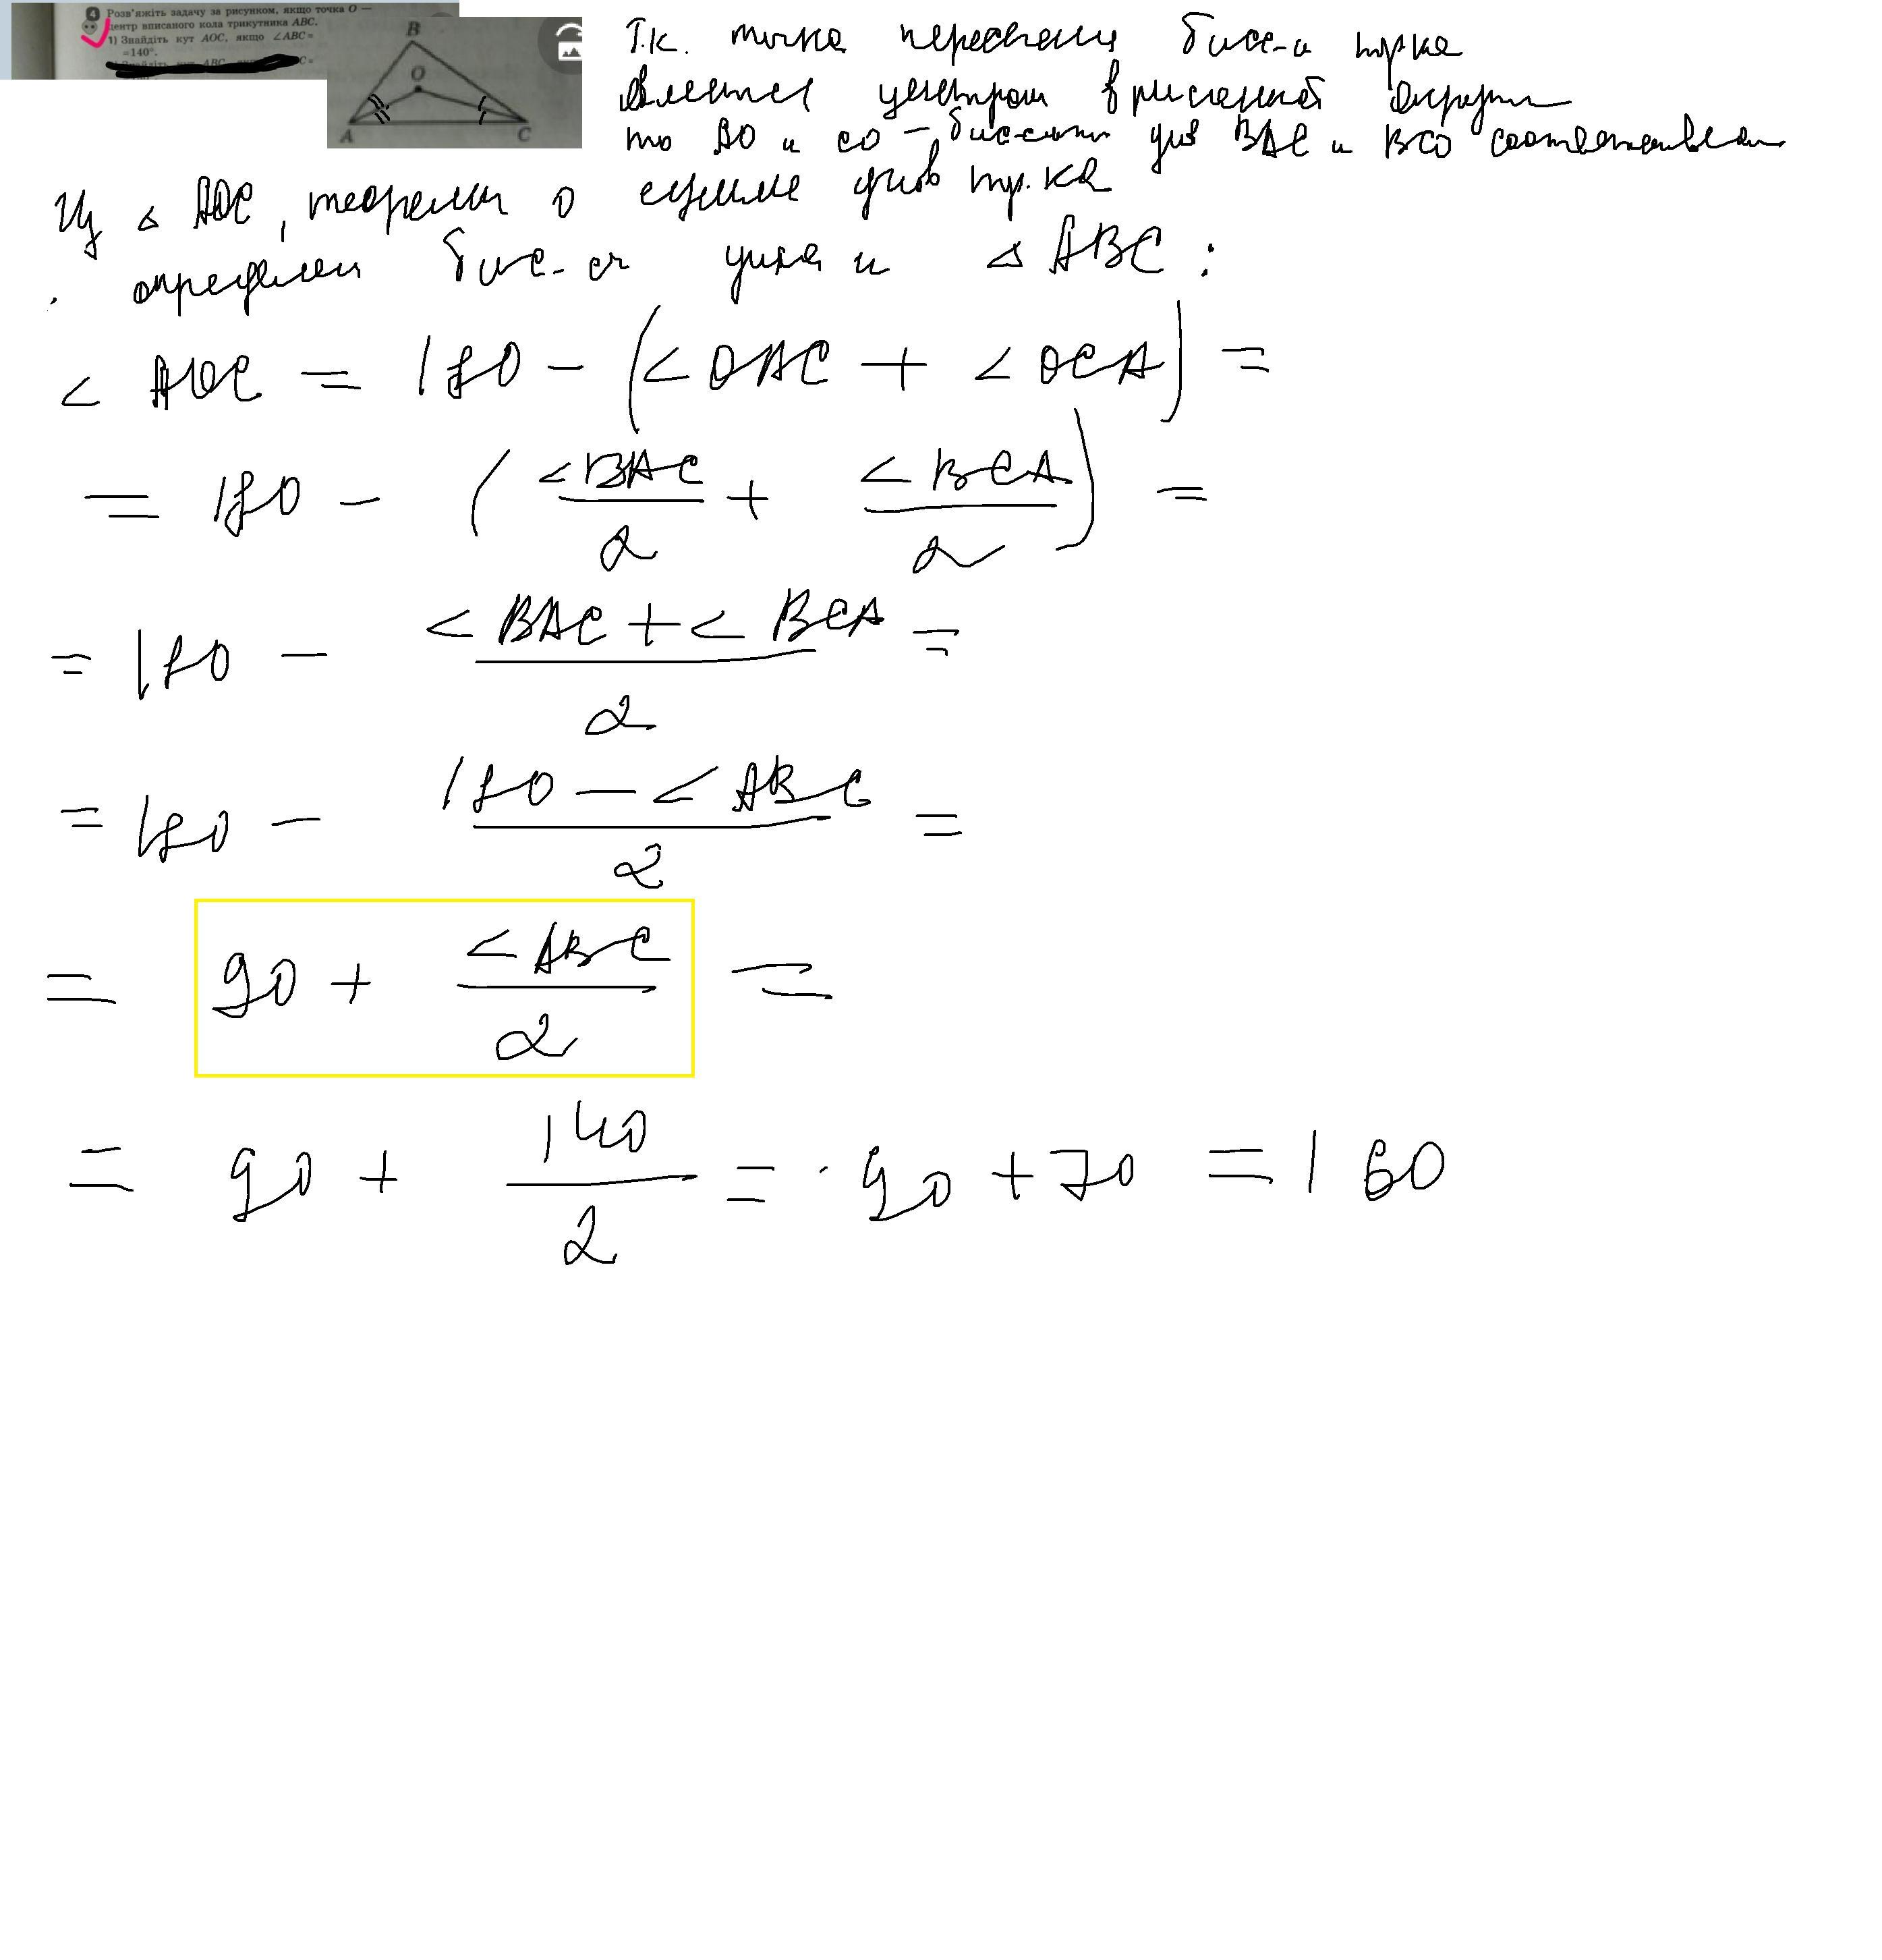 4 Розв'яжіть задачу за рисунком, якщо точка O —
центр вписаного кола трикутника ABC.
1) Знайдіть кут AOC, якщо ∠ABC=
=140°.
B
O
A C
Т.к. точка пересечения бисс-и тр-ка
является центром вписанной окружн
то AO и CO - бис-сы угл BAC и BCO соответственно
Из △ AOC, теоремы о сумме углов тр.ка
определения бис-сы угла и △ ABC:
< AOC = 180 - (< OAC + < OCA) =
= 180 - (<BAC/2 + <BCA/2) =
= 180 - (<BAC + <BCA)/2 =
= 180 - (180 - <ABC)/2 =
= 90 + <ABC/2 =
= 90 + 140/2 = 90 + 70 = 160